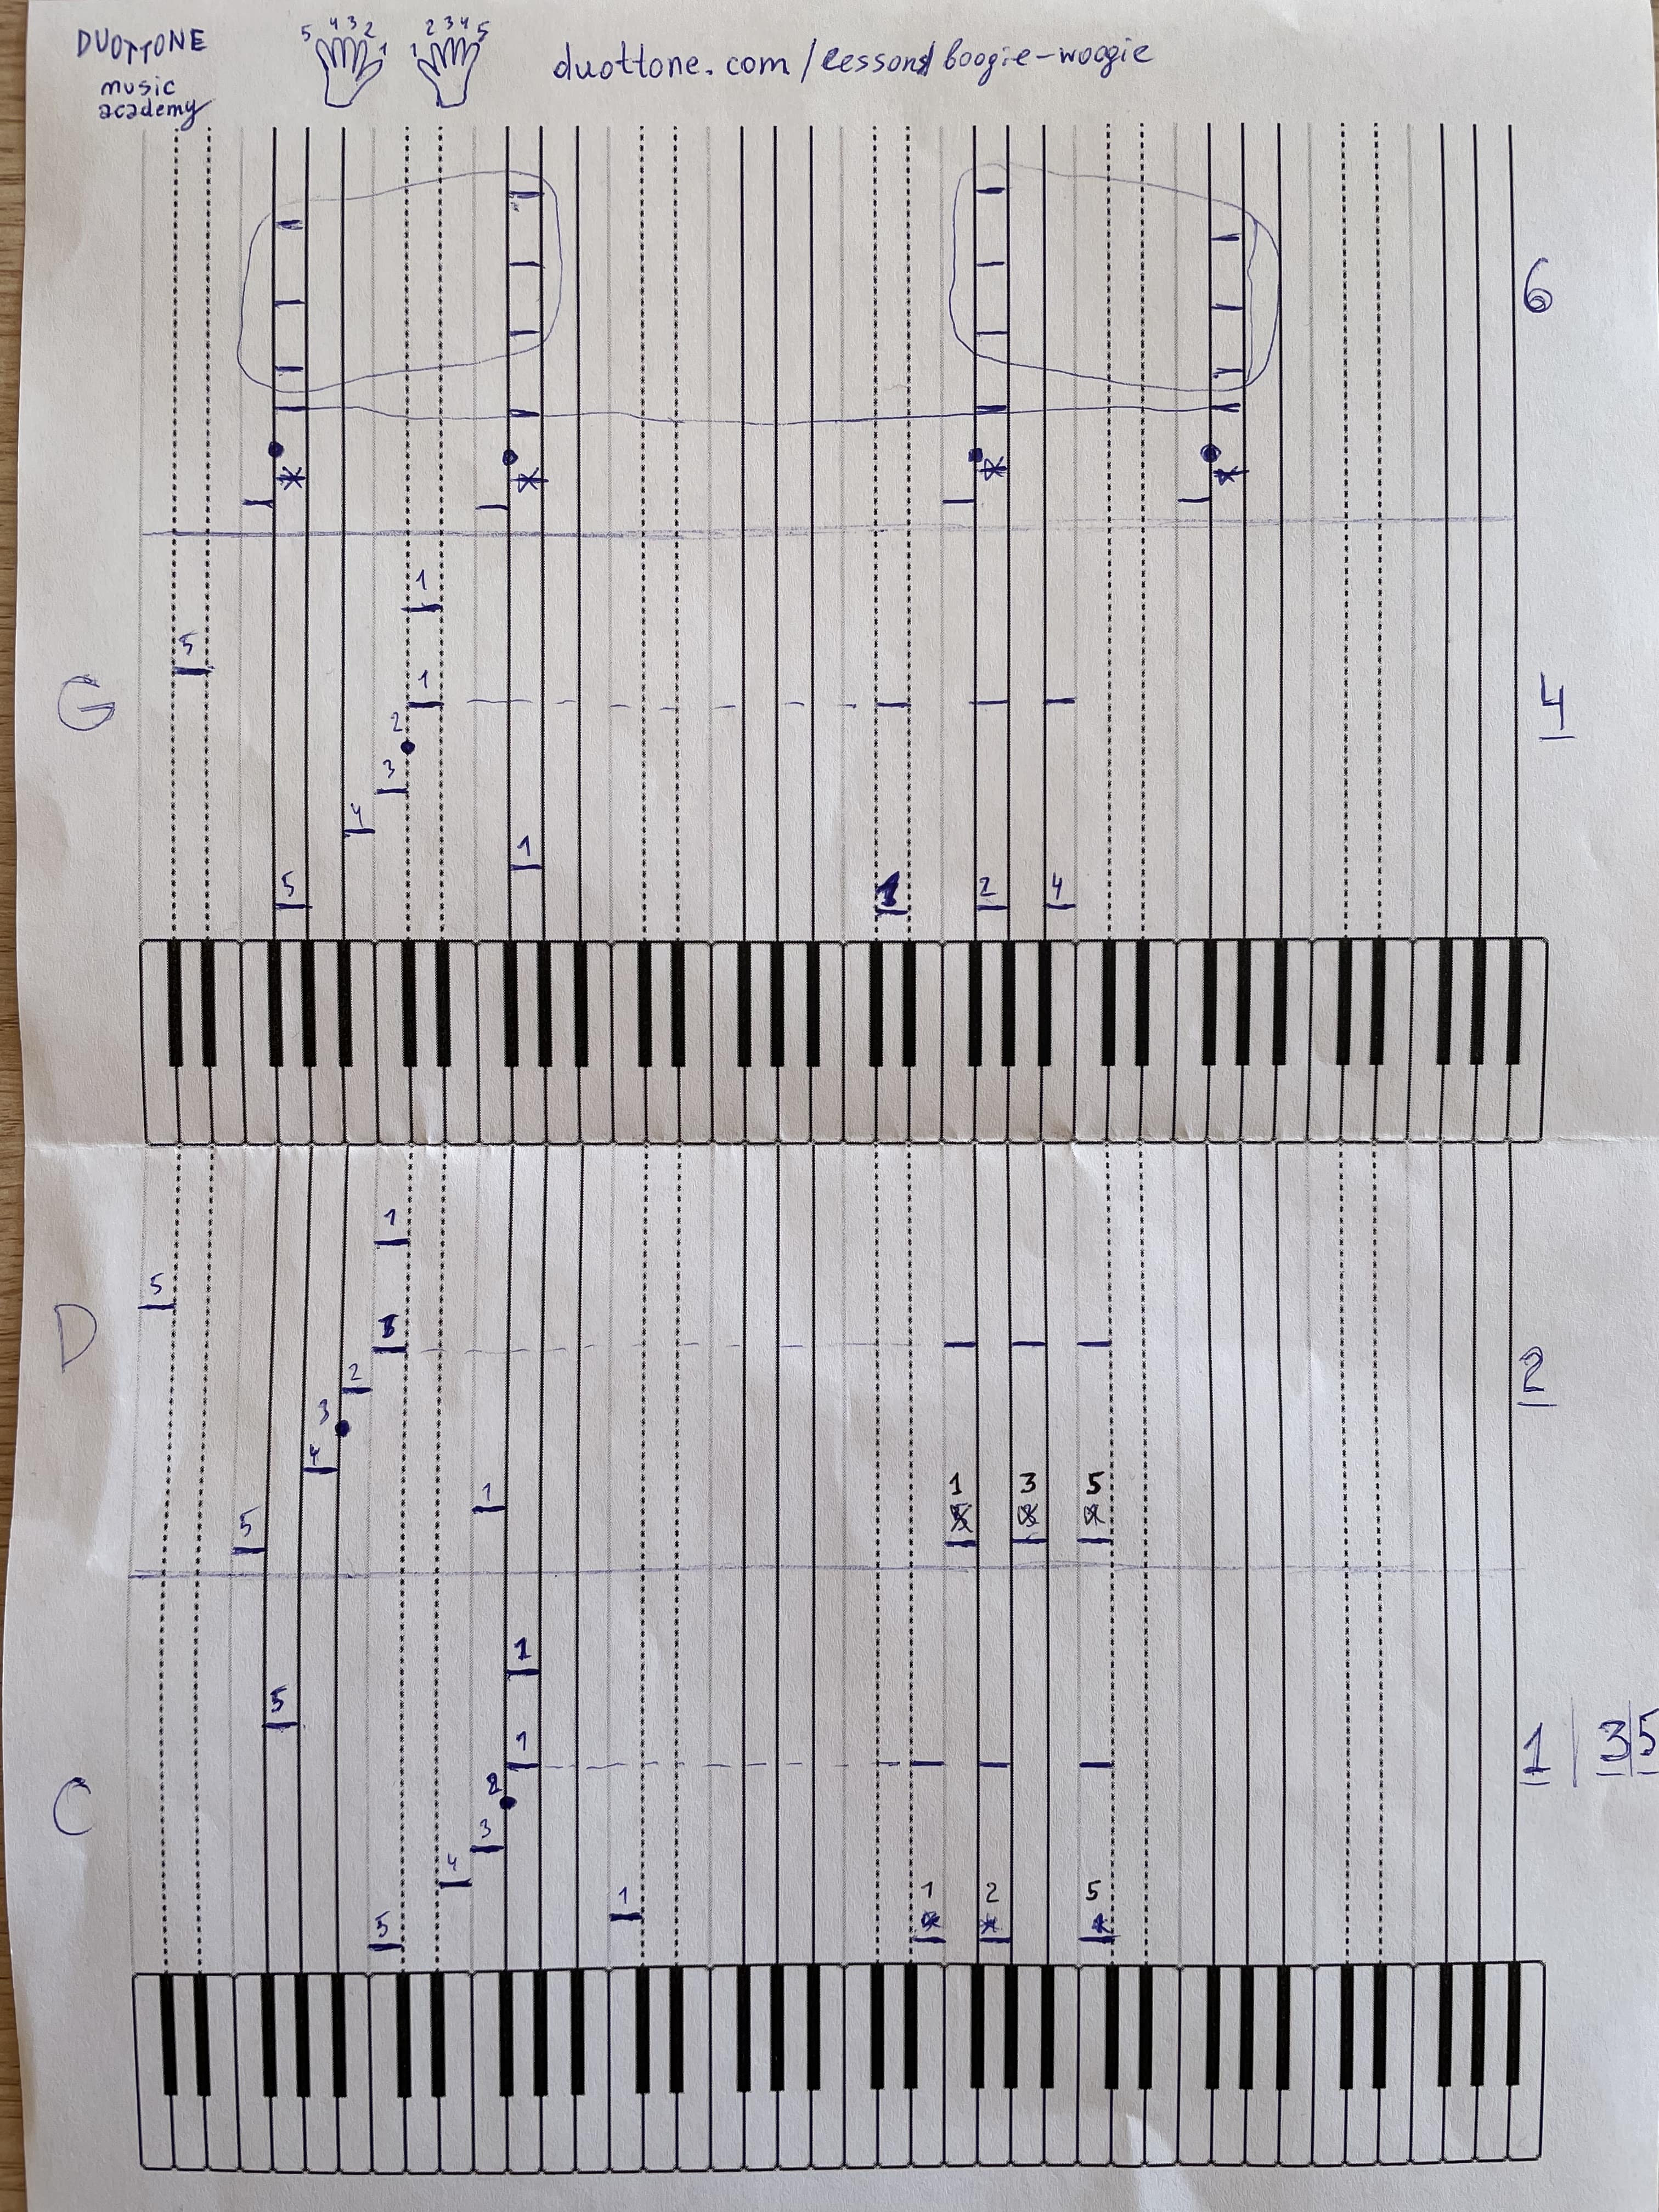 DUOTTONE
music
academy
5 4 3 2 1
1 2 3 4 5
duottone.com/lessons/boogie-woogie
6
1
5
G
1
4
2
3
4
1
5
1 2 4
1
5
D
1
2
2
3
4
1
1 3 5
5
1
5
1
1 | 3|5
C
2
3
4
1
1 2 5
5